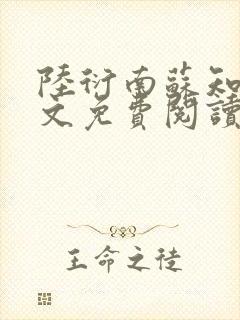 陸衍南蘇知
文免費閱讀
王命之徒